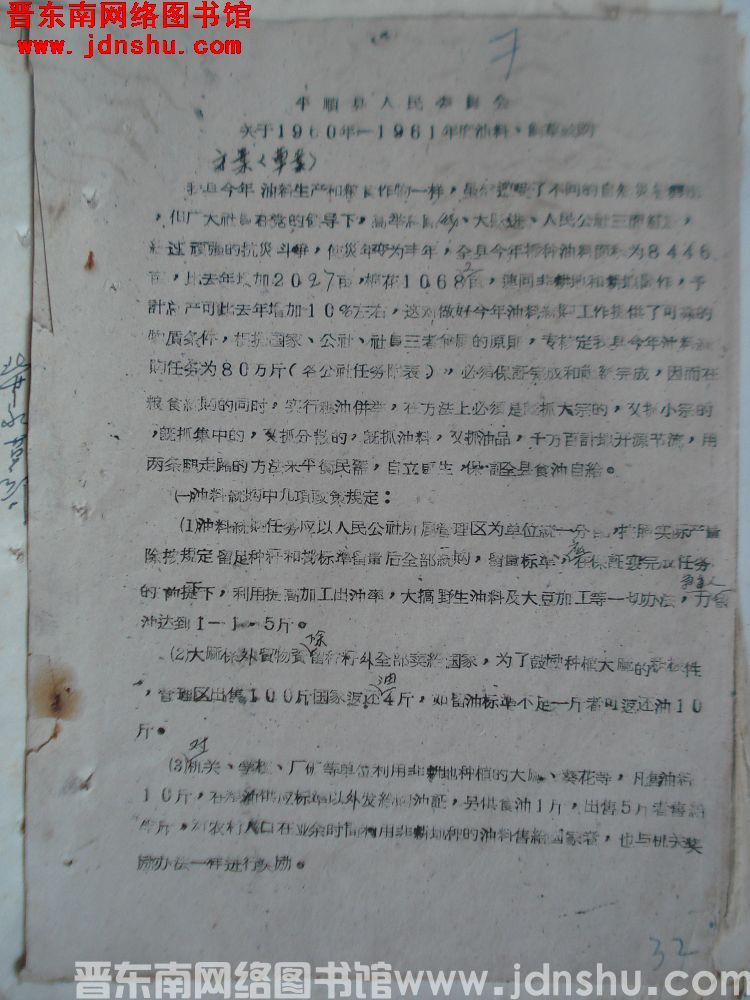 晋东南网络图书馆
www.jdnshu.com
平顺县人民委员会
关于1960年—1961年度油料、
方案(草案)
我县今年油料生产和粮食作物一样,虽然遭受了不同的自然灾害
,但广大社员在党的领导下,高举总路线、大跃进、人民公社三面红旗,
经过顽强的抗灾斗争,使灾年变为丰年,全县今年播种油料面积为8446
亩,比去年增加2027亩,棉花10682亩,连同非耕地和间作,予
計总产可比去年增加10%左右,这对做好今年油料統购工作提供了可靠的
物质条件,根据国家、公社、社員三者兼顾的原則,专核定我县今年油料統
购任务为80万斤(各公社任务附表),必須保証完成和超额完成,因而在
粮食統购的同时,实行粮油併举,在方法上必须是既抓大宗的,又抓小宗的
,既抓集中的,又抓分散的,既抓油料,又抓油品,千方百計地开源节流,用
两条腿走路的方法来平衡民需,自立更生,保証全县食油自給。
㈠油料統购中几項政策規定:
⑴油料統购任务应以人民公社所属管理区为单位統一分配,按照实际产量
除按規定留足种籽和按标准留量后全部統购,留量标准,应在保証完成任务
的前提下,利用提高加工出油率,大搞野生油料及大豆加工等一切办法,力争每人
油达到1—1.5斤。
⑵大麻除外貿物資留种籽外全部卖給国家,为了鼓励种植大麻的积极性
,管理区出售100斤国家返还油4斤,如留油标准不足一斤者可返还油10
斤。
⑶对机关、学校、厂矿等单位利用非耕地种植的大麻、葵花等,凡售油料
10斤,在食油供应标准以外发給购油証,另供食油1斤,出售5斤者售給
半斤,对农村人口在业余时間利用非耕地种的油料售給国家者,也与机关奖
励办法一样进行奖励。
32
晋东南网络图书馆www.jdnshu.com